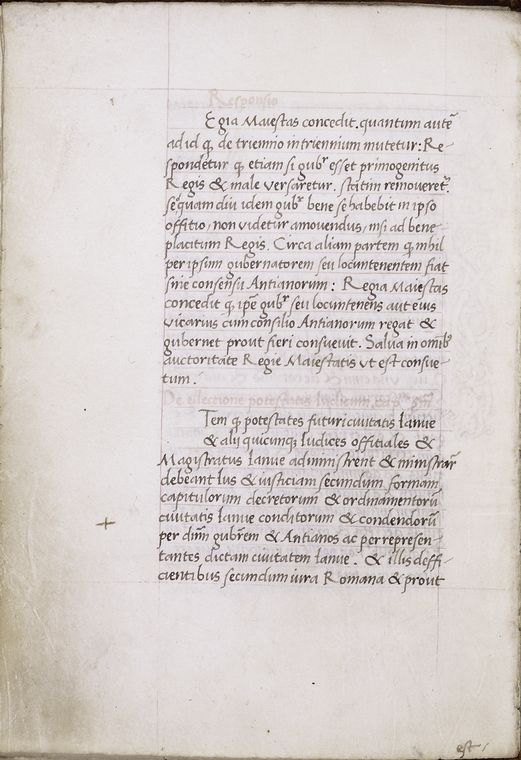 Responsio
Egia Maiestas concedit. quantum autẽ
ad id q, de triennio in triennium mutetur: Re-
spondetur q, etiam si gubʳ esset primogenitus
Regis & male versaretur. statim removeretʳ.
seq̃ quam diu idem gubʳ bene se habebit in ipso
offitio, non videtur amovendus, nisi ad bene-
placitum Regis. Circa aliam partem q, nihil
per ipsum gubernatorem seu locuntenentem fiat
sine consensu Antianorum: Regia Maiestas
concedit q, ip̃e gubʳ seu locuntenens aut eius
vicarius cum consilio Antianorum regat &
gubernet prout fieri consuevit. Salva in omibꝰ
auctoritate Regie Maiestatis ut est consue-
tum.
De ellectione potestatis Iudicum,
Tem q, potestates futuri civitatis Ianue
& alij quicunq; Iudices offitiales &
Magistratus Ianue administrent & ministrar̃
debeant Ius & iusticiam secundum formam
capitulorum decretorum & ordinamentorũ
civitatis Ianue conditorum & condendorũ
per dim̃ gubr̃em & Antianos ac per represen-
tantes dictam civitatem Ianue. & illis deffi-
cientibus secundum iura Romana & prout
est